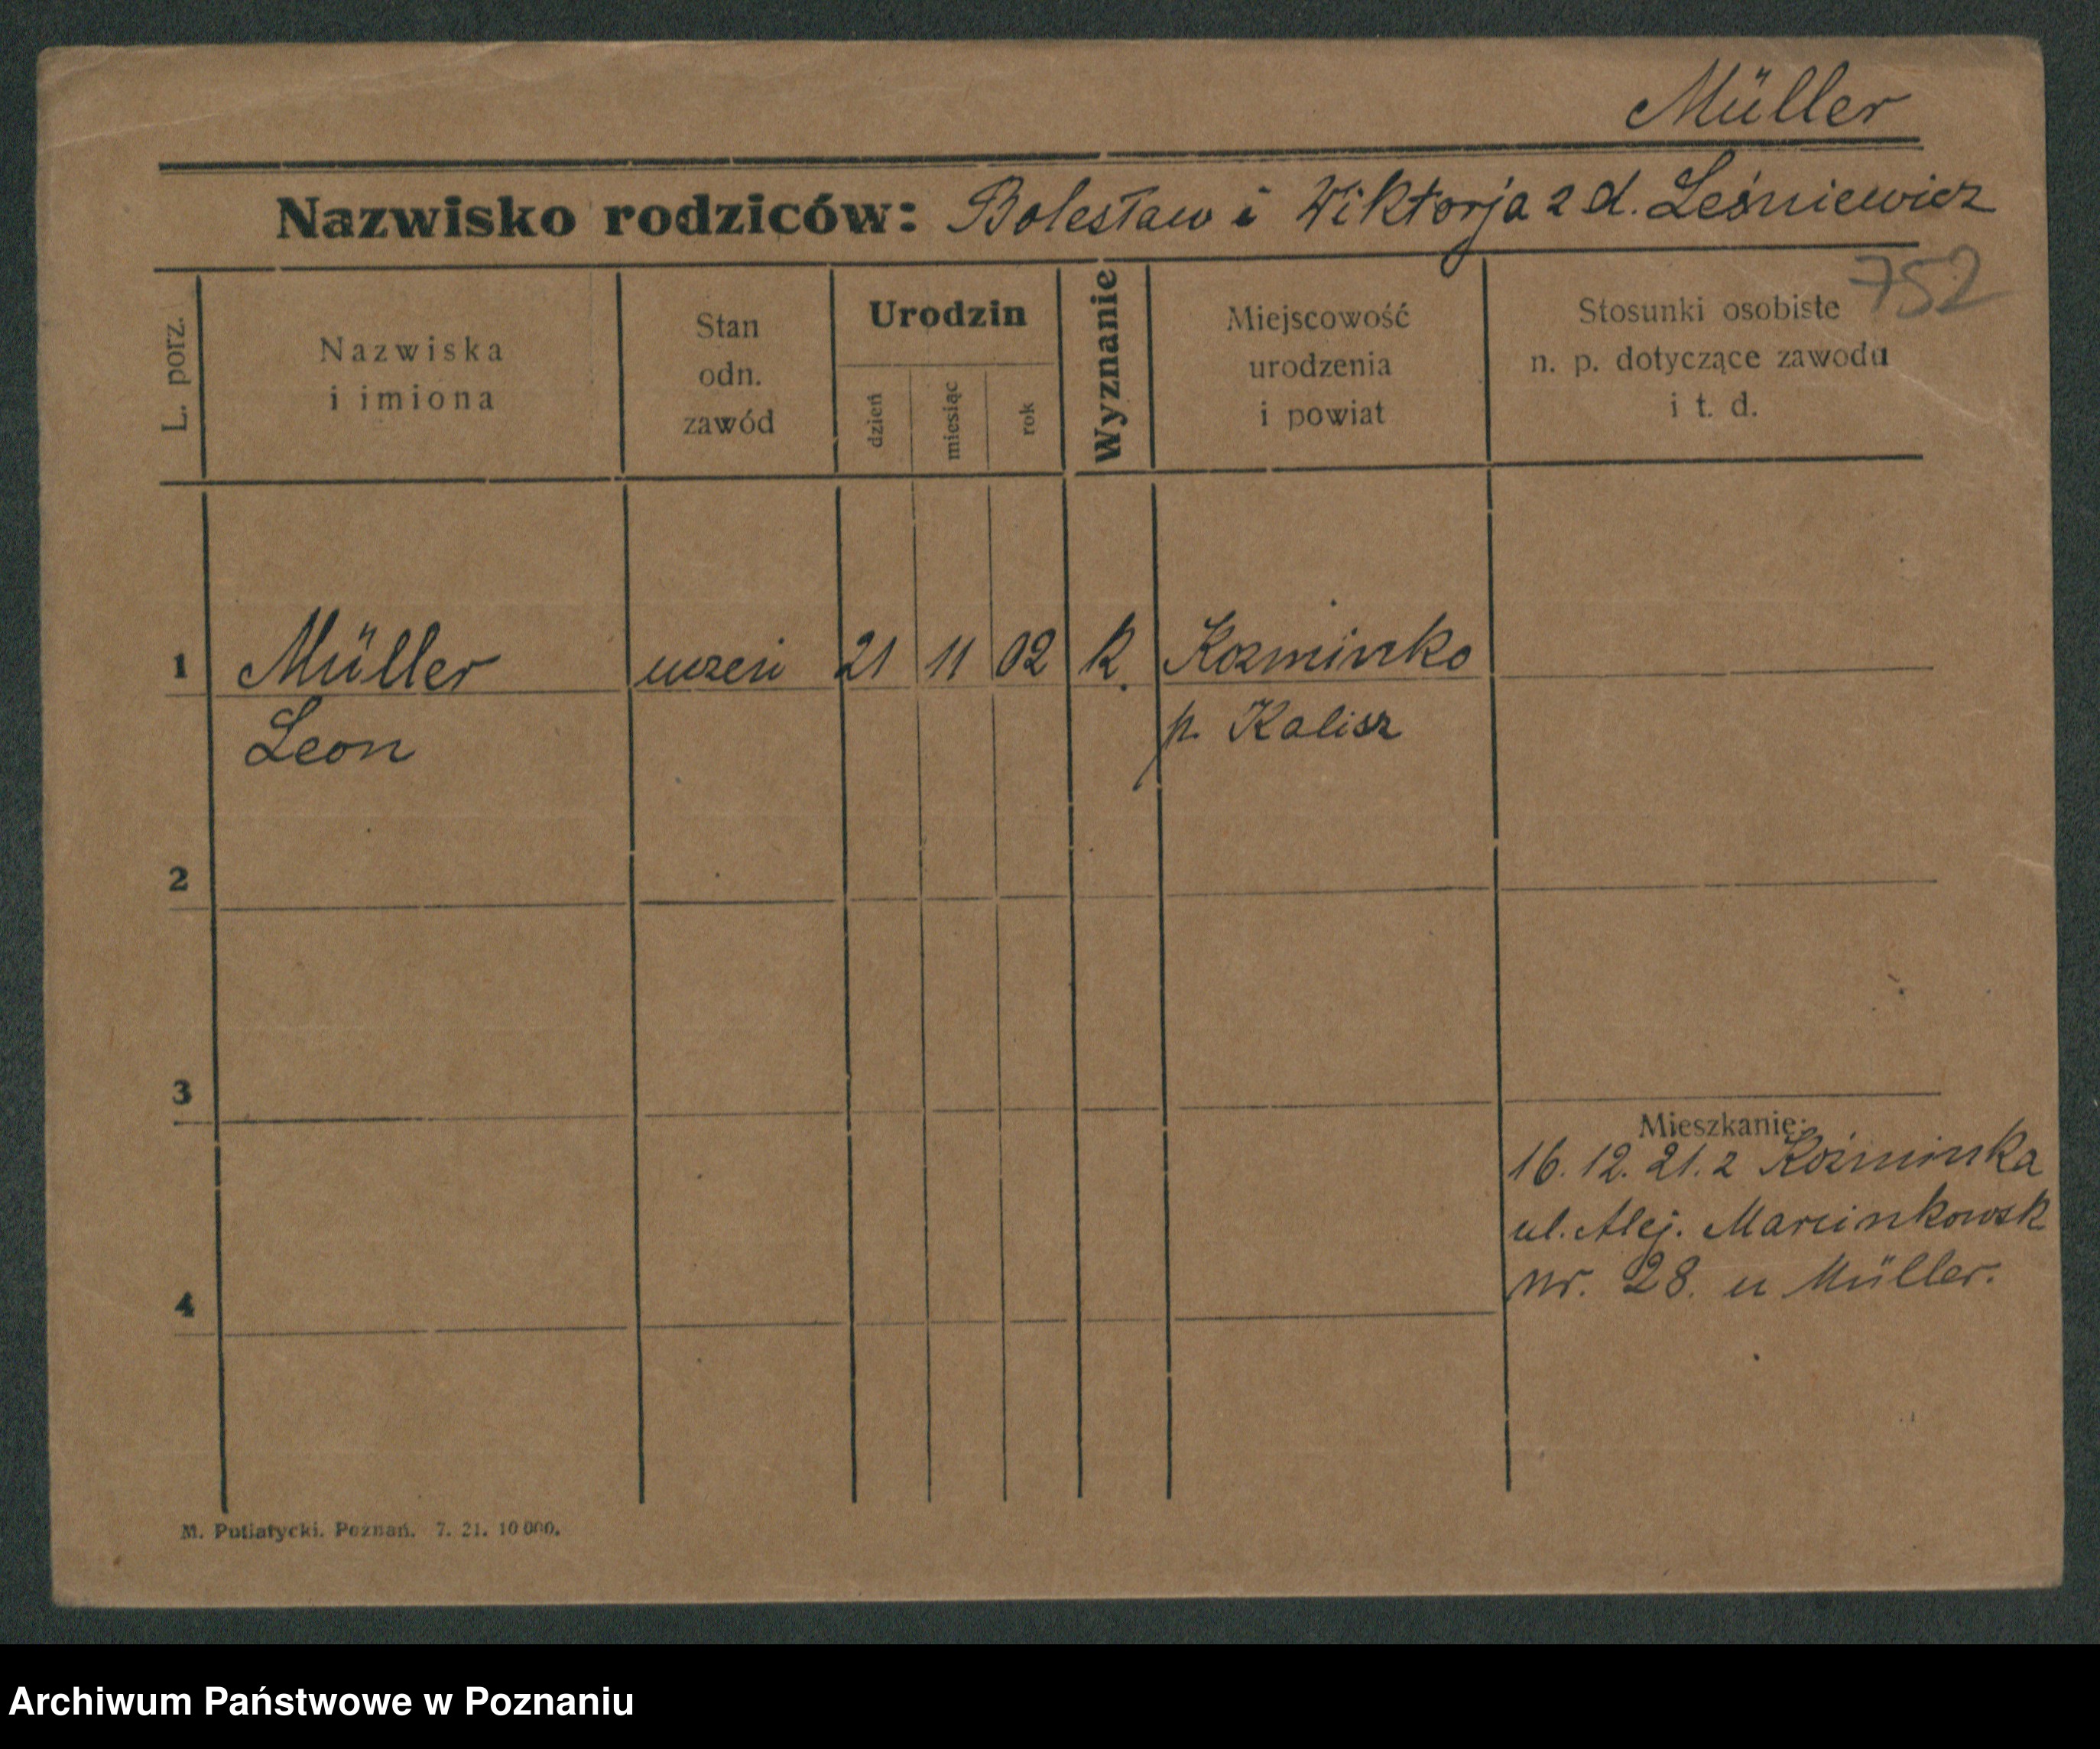 Müller
Nazwisko rodziców: Bolesław i Wiktorja z d. Leśniewicz
752
L. porz.
Nazwiska
i imiona
Stan
odn.
zawód
Urodzin
dzień
miesiąc
rok
Wyznanie
Miejscowość
urodzenia
i powiat
Stosunki osobiste
n. p. dotyczące zawodu
i t. d.
1 Müller uczeń 21 11 02 k. Kozminko
Leon p. Kalisz
2
3
Mieszkanie:
16. 12. 21. z Koźminka
ul. Alej. Marcinkowsk
4 nr. 28. u Müller.
M. Putiatycki. Poznań. 7. 21. 10 000.
Archiwum Państwowe w Poznaniu